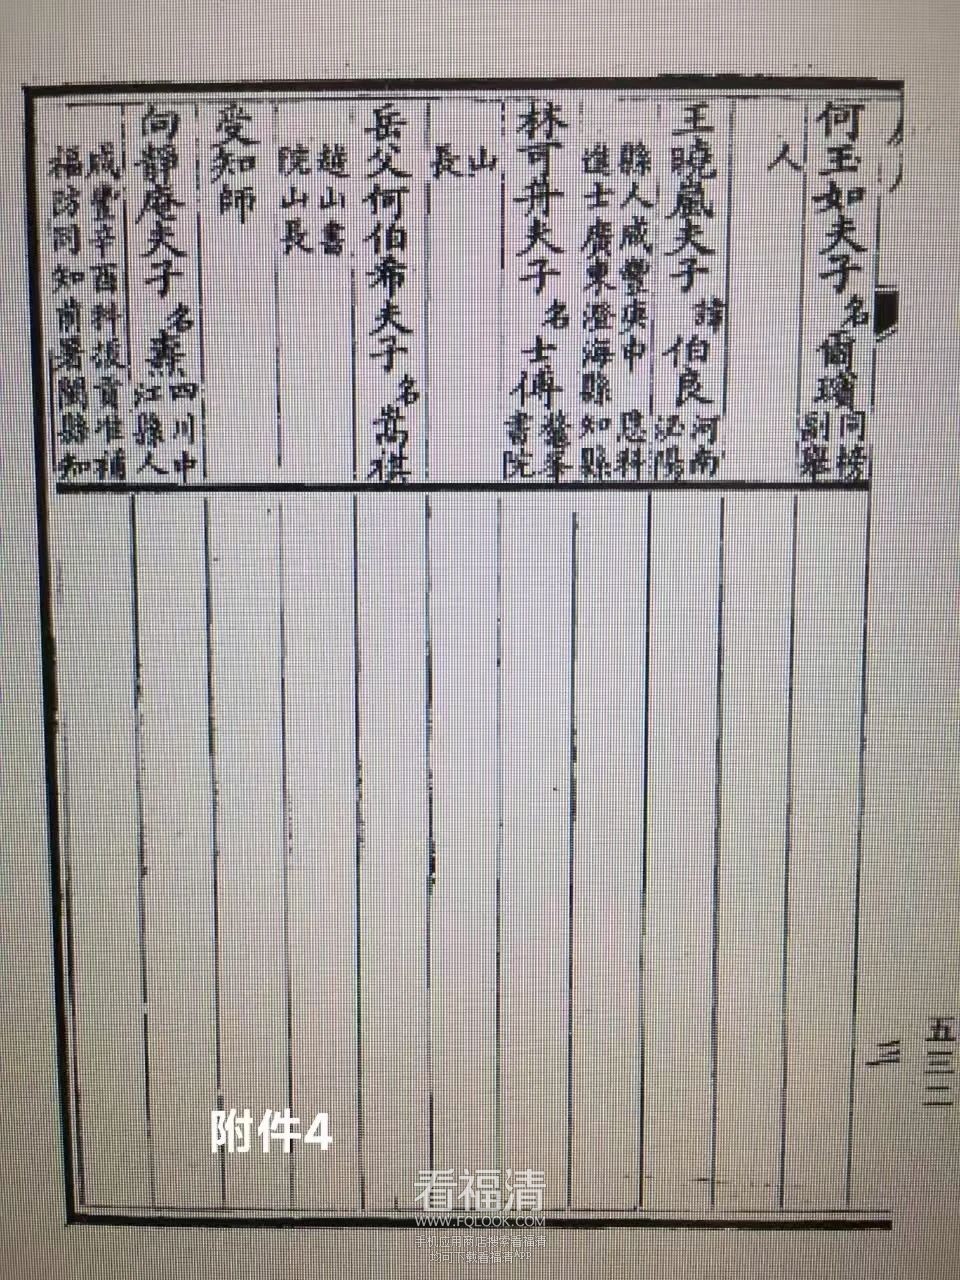 何玉如夫子名爾璸同榜副舉
人
王曉嵐夫子諱伯良河南泌陽
縣人咸豐庚申恩科
進士廣東澄海縣知縣
林可舟夫子名士傅鰲峯書院
山
長
岳父何伯希夫子名嵩祺
越山書
院山長
受知師
向靜庵夫子名燾四川中江縣人
咸豐辛酉科拔貢准補
福防同知前署閩縣知
三
五三二
附件4
看福清
WWW.FQLOOK.COM
手机应用商店搜索看福清
均可下载看福清APP